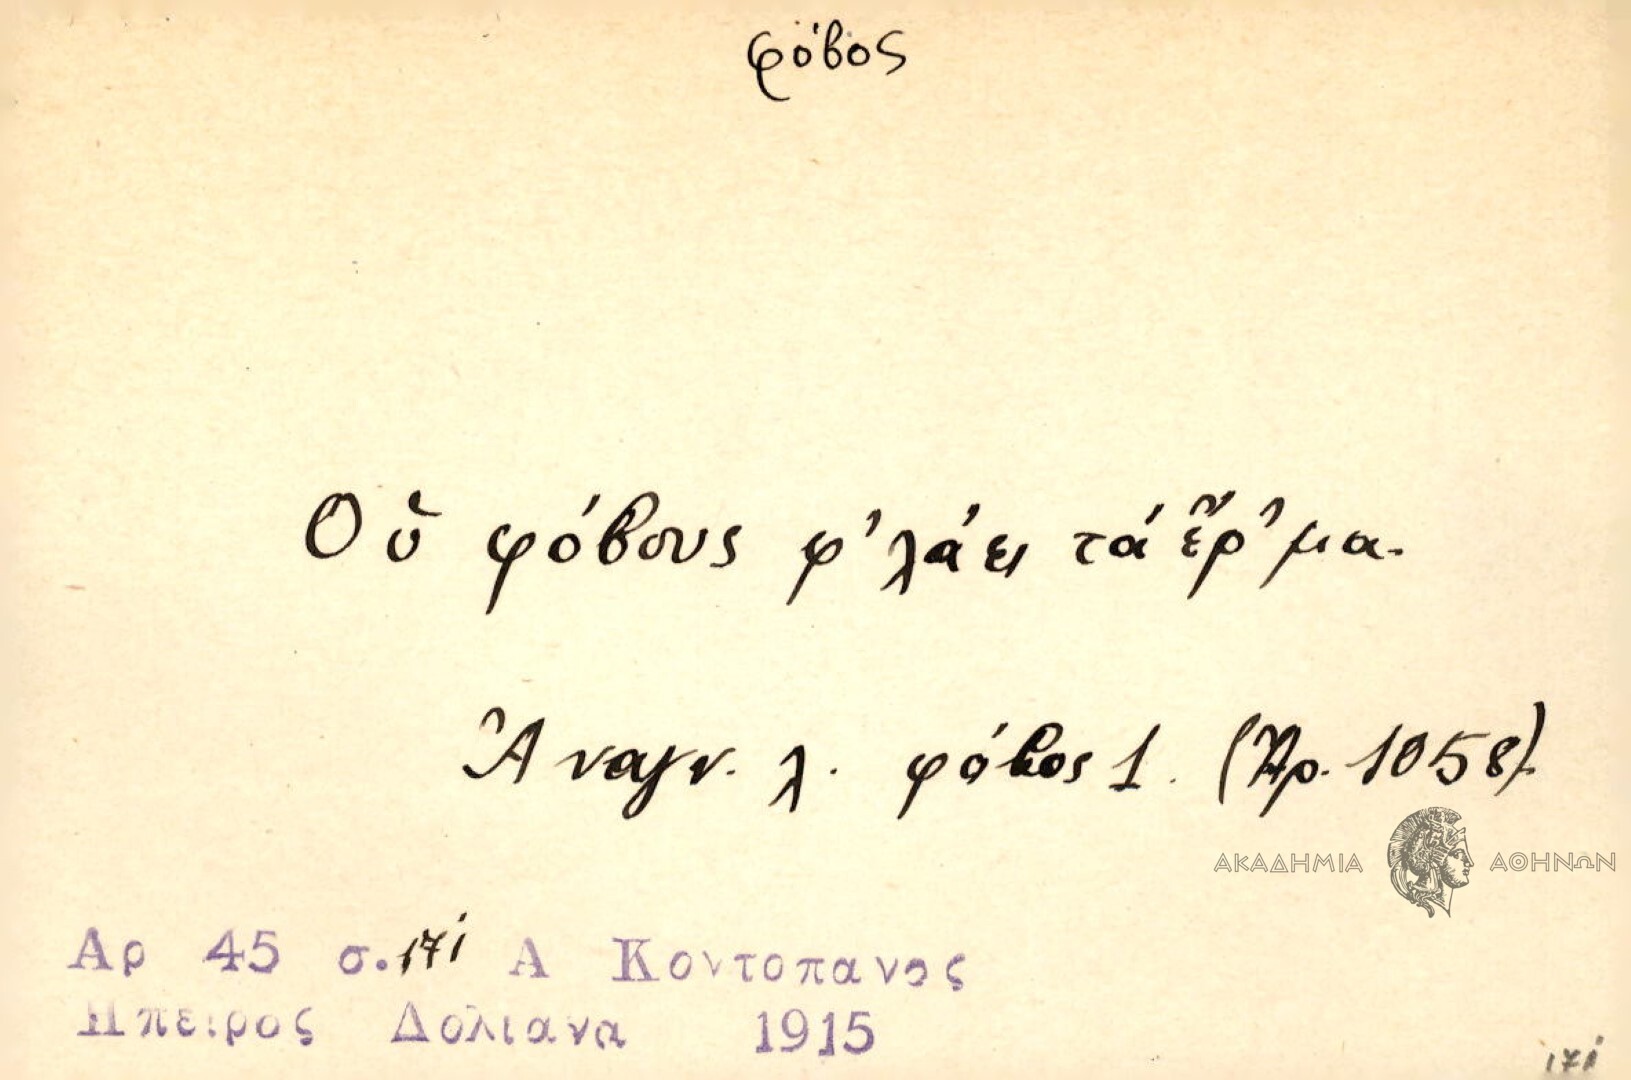 φόβος
Οὑ φόβους φ'λάει τά ἔρ'μα.
Ἀναγν. λ. φόβος 1. (Ἀρ. 1058).
ΑΚΑΔΗΜΙΑ ΑΘΗΝΩΝ
Αρ 45 σ. 171 Α Κοντοπανος
Ηπειρος Δολιανα 1915
171